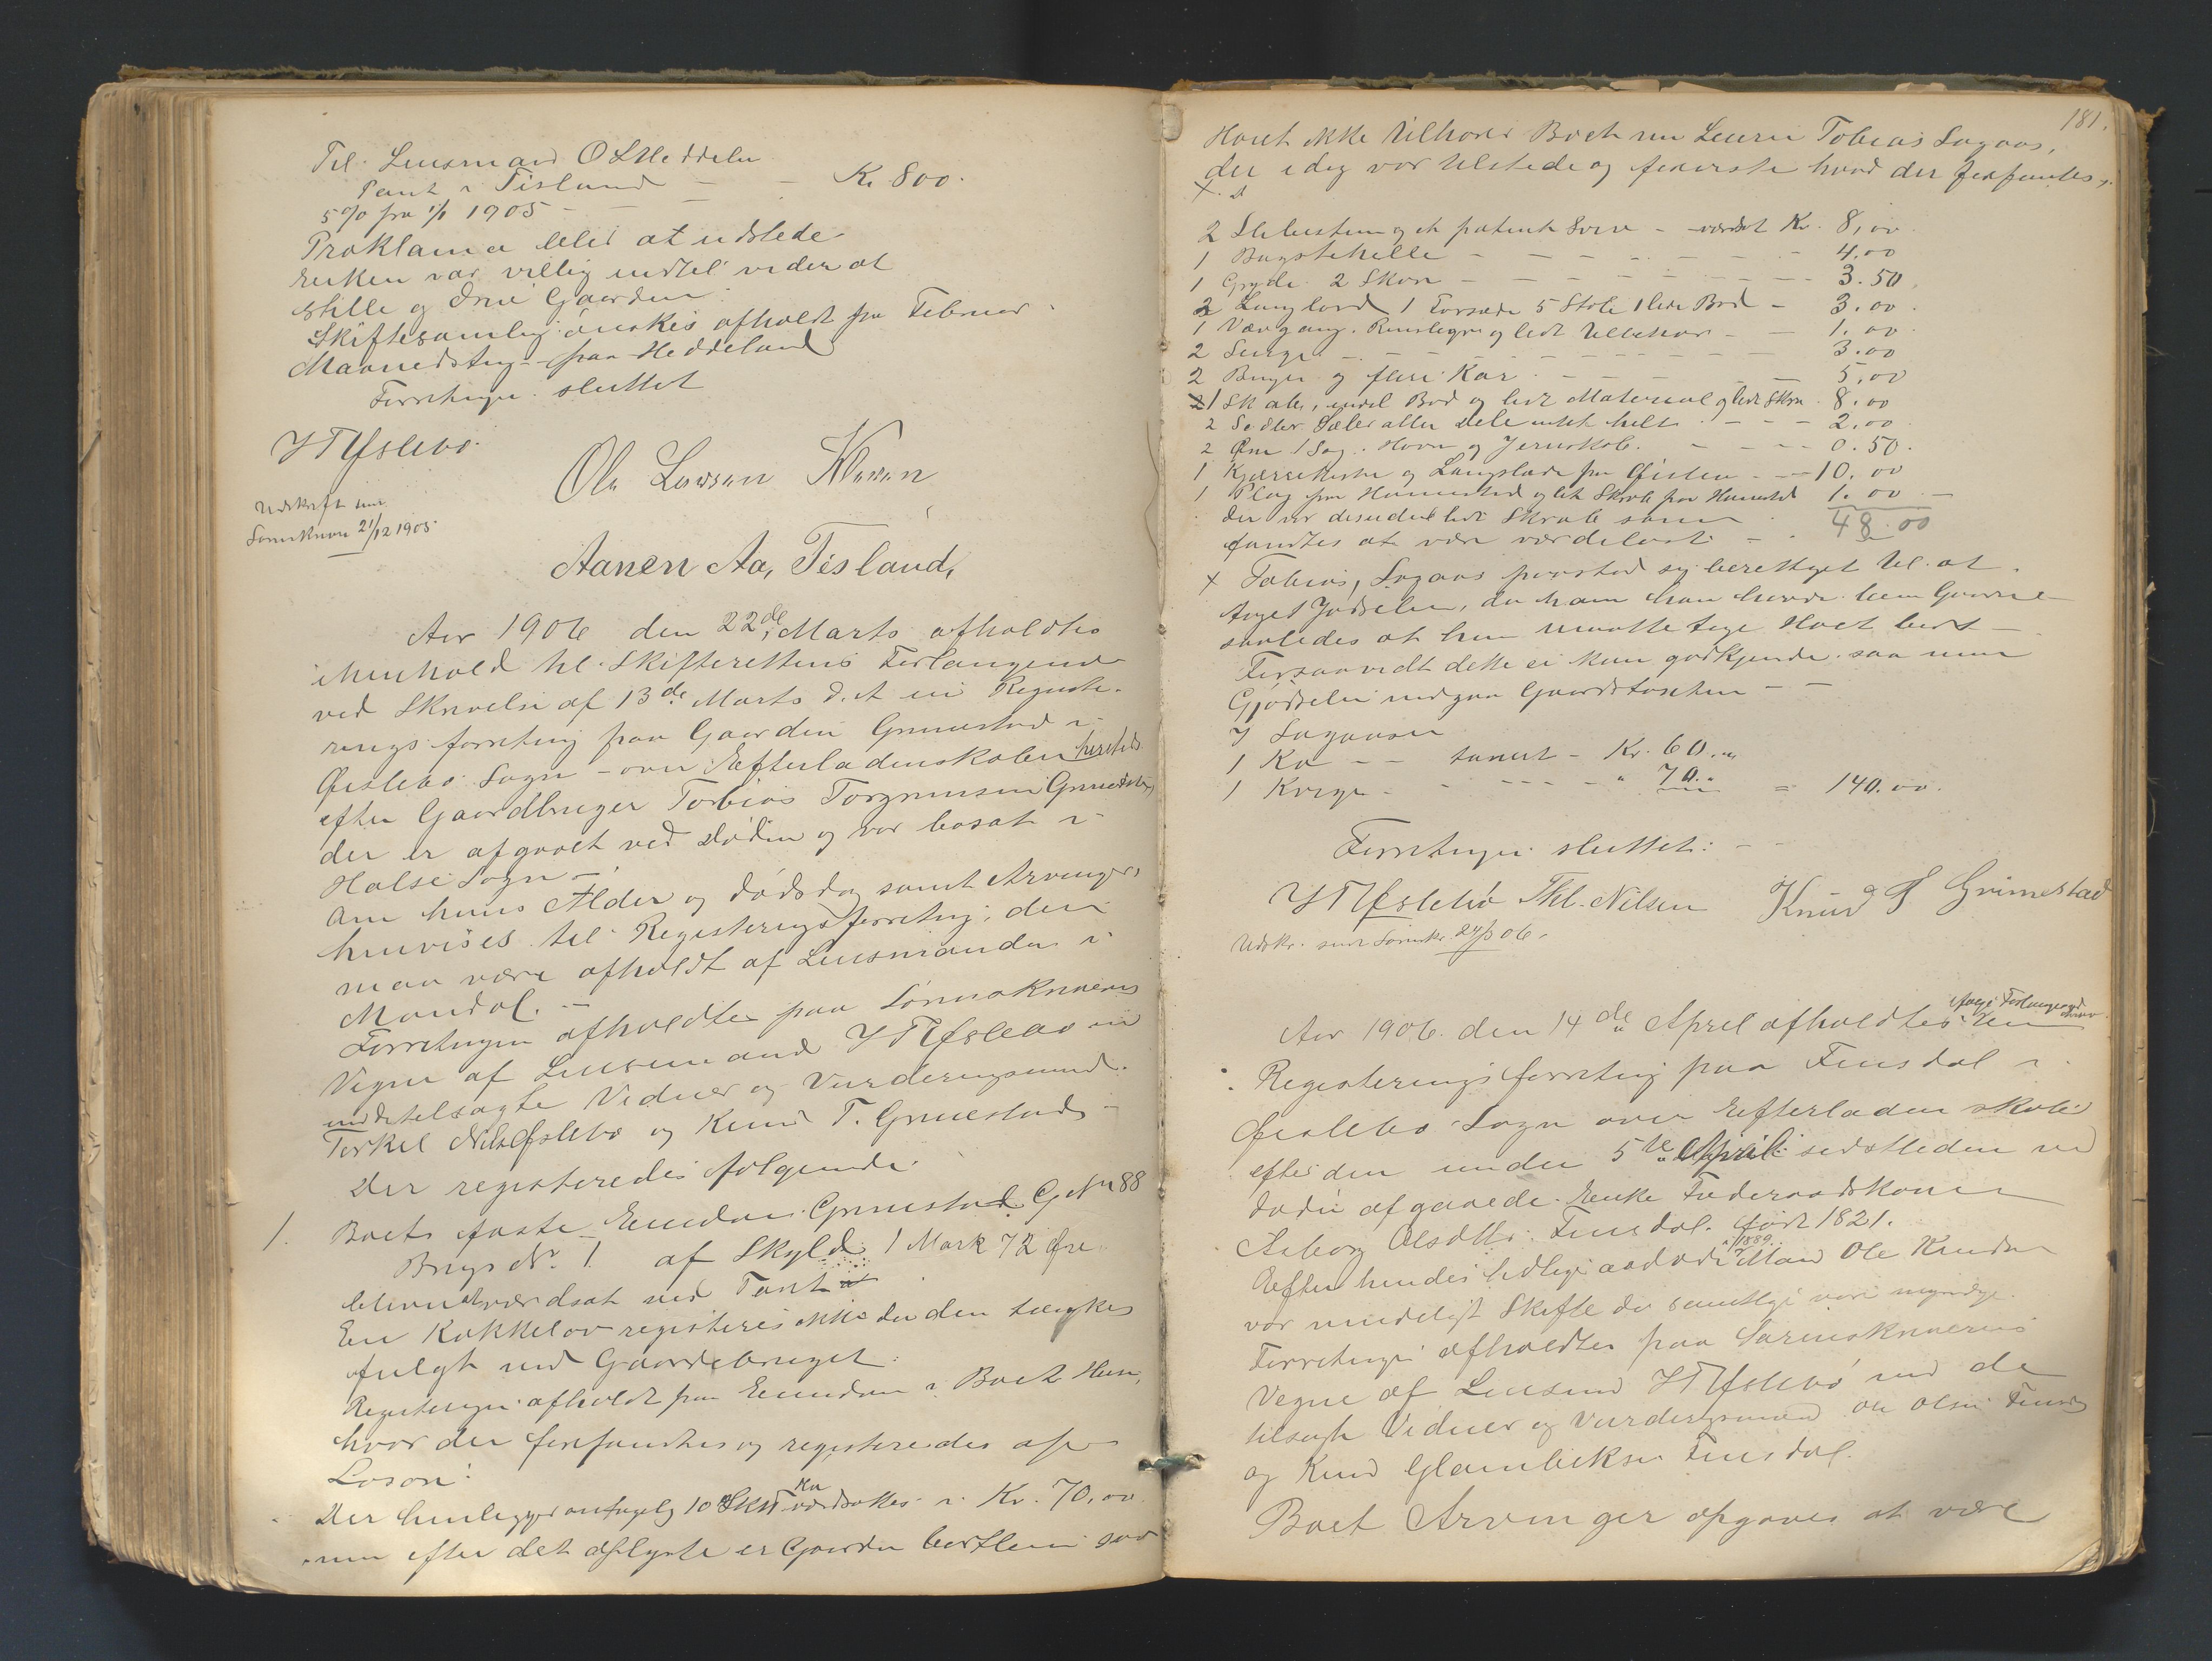 Til Lensmand O Heddelu
Pant i Tisland - - Kr 800.
5% fra 1/1 1905 - - -
Proklama at udstede
Enken var villig indtil videre at
stille og drive Gaarden.
Skiftesamling ønskes afholdt paa Februar
Maanedsting - paa Heddeland
Forretningen sluttet
Udskrift
Sorenskriver 21/12 1905.
Ole Larsen
Aanen Aa, Tisland,
Aar 1906 den 22de Marts afholdtes
i henhold til Skifterettens Forlangende
ved Skrivelse af 13de Marts d. A en Registe-
rings forretning paa Gaarden Grimestad i
Øislebø Sogn - over Efterladenskaber
efter Gaardbruger Tobias Grimestad,
der er afgaaet ved Døden og var bosat i
Halse Sogn -
Om hans Alder og dødsdag samt Arvinger
henvises til Registeringsforretning, der
maa være afholdt af Lensmanden i
Mandal. -
Forretningen afholdtes paa Sorenskriverens
Vegne af Lensmand Øslebø
med tilsagte Vidner og Vurderingsmænd.
Torkel Nils Øslebø og Knud T. Grimestad -
Der registeredes følgende:
1. Boets faste Eiendom Grimestad G.Nr 88
Brugs No. 1 af Skyld 1 Mark 72 Øre
blev værdsat ved Taxt
En Kakkelov registeres ikke da den tænkes
fulgt med Gaardebruget.
Registeringen afholdt paa Eiendom i Boets Hus,
hvor der forefandtes og registeredes af
Løsøre:
Der henligger 10 værdsattes i Kr. 70,00
men efter det oplyste er Gaarden
181.
Høiet ikke tilhører Boet men Tobias Sogaas,
der idag var tilstede og foreviste hvad der forfantes.
2 Slibesten og et patent - værdsat Kr. 8,00
1 Bagstehelle - - - - - - 4.00
1 Gryde 2 - - - - - - 3.50
2 Langbord 1 5 Stole 1 Bord - 3.00
1 og lidt - - 1.00
2 Senge - - - - - - 3.00
2 og flere Kar - - - - 5,00
1 Skabe, endel Bord og lidt Material og lidt 8.00
2 Sadler Sæler eller Dele intet helt - - - 2.00
2 1 Sag. Høvn og - - - 0.50.
1 og paa Øislebø - 10.00
1 Plog paa og lidt Skrab paa 1.00 -
der var desuden lidt Skrab som
fandtes at være værdiløst - 48.00
x Tobias Sogaas paastod sig berettiget til at
Gjødselen, da ham
saaledes at han maatte tage Høet bort -
Forsaavidt dette ei kan godkjendes saa maa
Gjødselen medgaa Gaardstaxten - -
I Sogaasen
1 Ko - - taxert - Kr. 60.
1 Kvige - - - - - 70. = 140.00.
Forretningen sluttet: - -
Øslebø Nilsen Knud T Grimestad
Udskr. sendt 24/3 06.
Aar 1906 den 14de April afholdtes en
Registeringsforretning paa Finsdal i
Øislebø Sogn over Efterladenskaber
efter den under 5te April sidstleden ved
døden afgaaede Enke Føderaadskone
Olsdtr. Finsdal. født 1821.
Efter hendes tidligere afdøde 1889 Mand Ole Knudsen
var mindeligt Skifte da samtlige var myndige.
Forretningen afholdtes paa Sorenskriverens
Vegne af Lensmand Øslebø med de
tilsagte Vidner og Vurderingsmænd Ole Olsen Finsdal
og Knud Finsdal.
Boets Arvinger opgaves at være